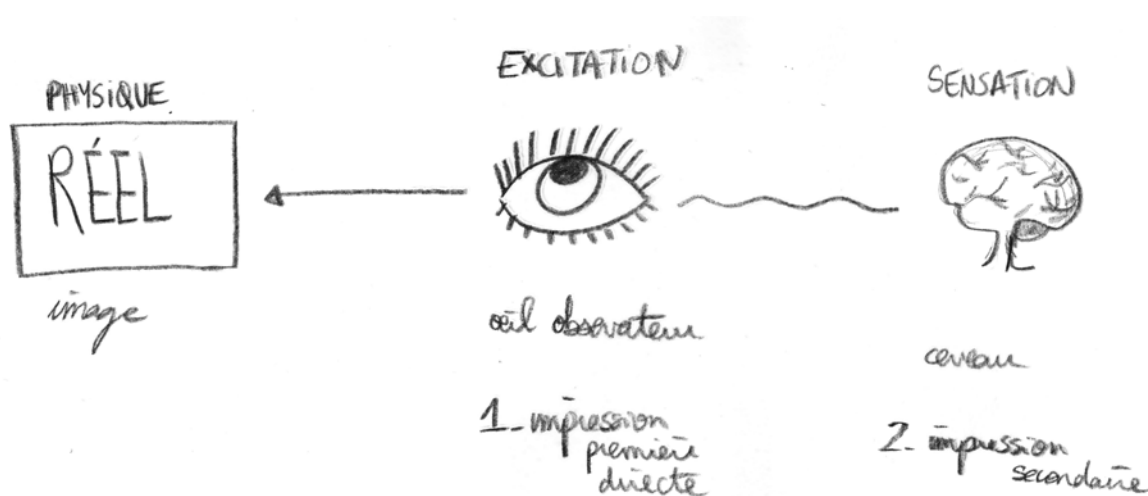 PHYSIQUE
RÉEL
image
EXCITATION
œil observateur
1_ impression
première
directe
SENSATION
cerveau
2_ impression
secondaire